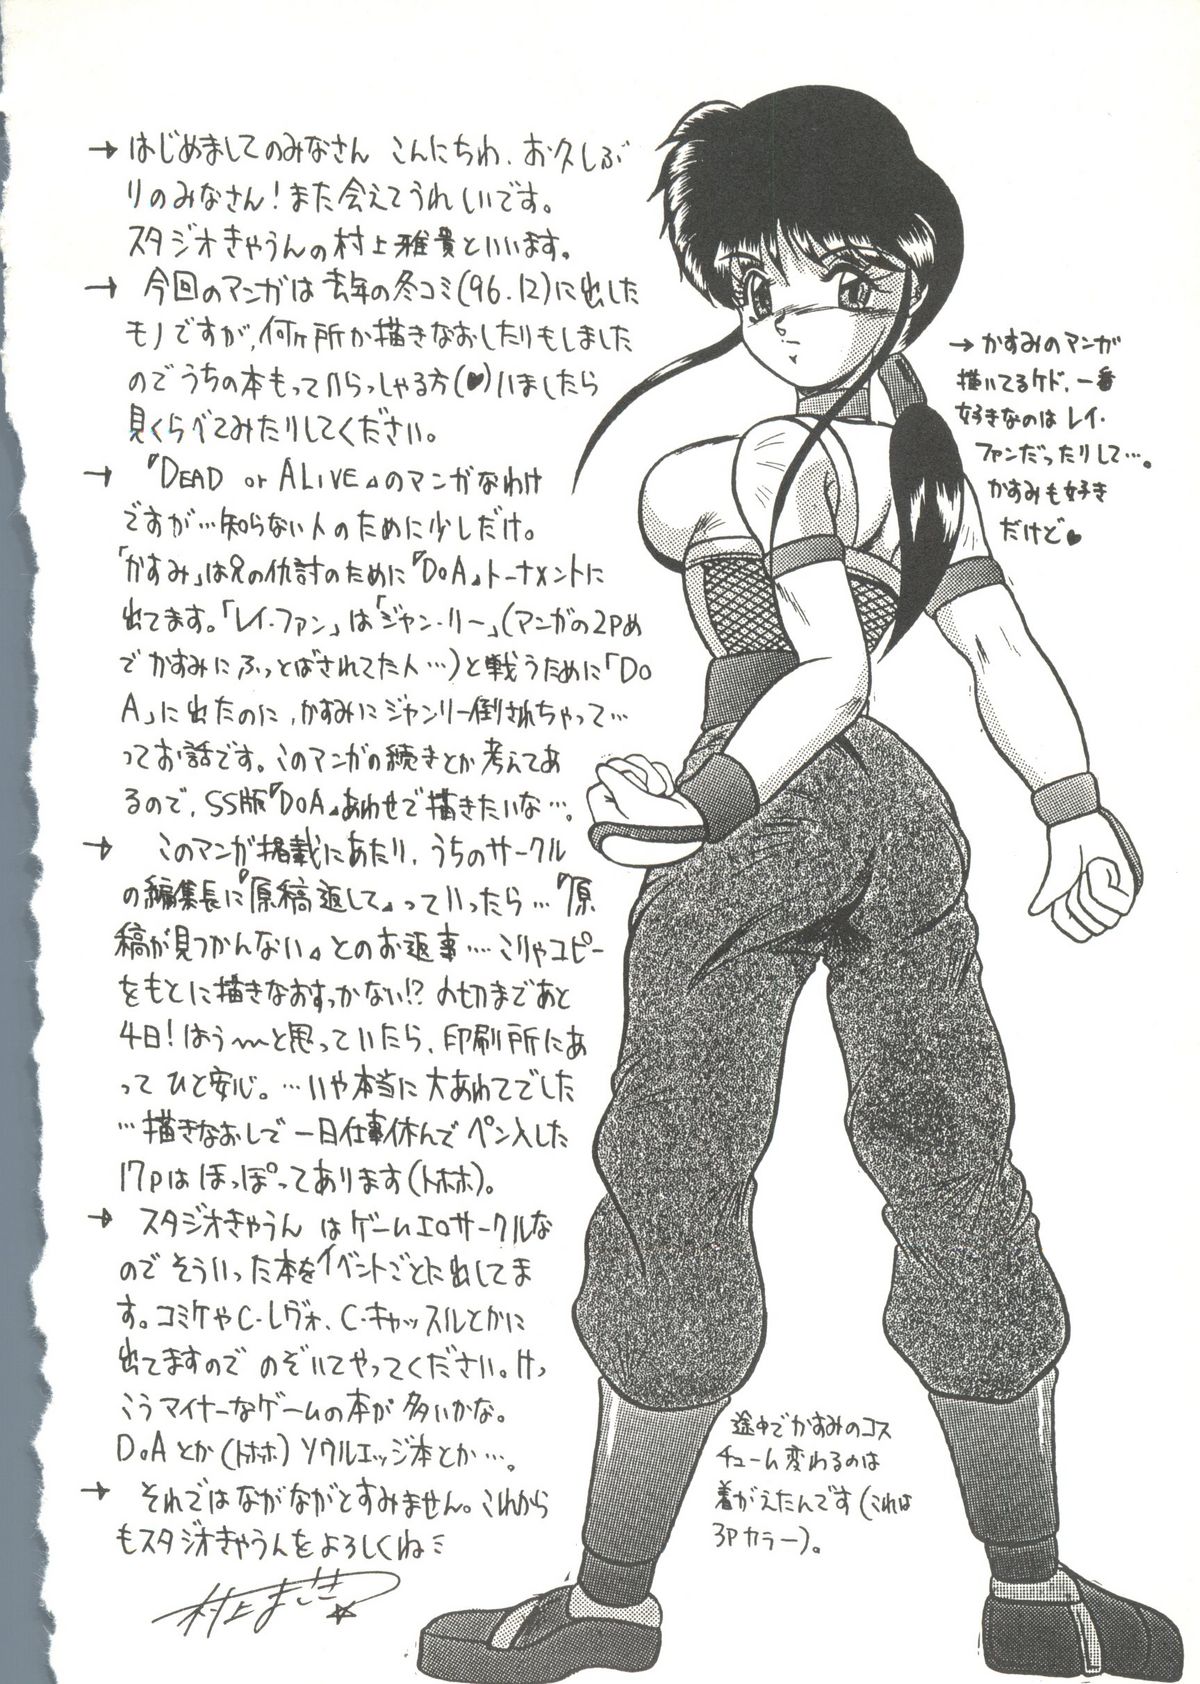 →はじめましてのみなさん こんにちわ、お久しぶ
りのみなさん!また会えてうれしいです。
スタジオきゃうんの村上雅貴といいます。
→ 今回のマンガは去年の冬コミ(96.12)に出した
モノですが、何ヶ所か描きなおしたりもしました
のでうちの本もっていらっしゃる方(♥)いましたら
見くらべてみたりしてください。
→ 『DEAD or ALIVE』のマンガなわけ
ですが…知らない人のために少しだけ。
「かすみ」は兄の仇討のために『DoA』トーナメントに
出てます。「レイ・ファン」は「ジャン・リー」(マンガの2Pめ
でかすみにふっとばされてた人…)と戦うために「Do
A」に出たのに、かすみにジャンリー倒されちゃって…
ってお話です。このマンガの続きとか考えてあ
るので、SS版『DoA』あわせで描きたいな…。
→ このマンガ掲載にあたり、うちのサークル
の編集長に『原稿返して』っていったら…『原
稿が見つかんない』とのお返事…こりゃコピー
をもとに描きなおすっかない!?〆切まであと
4日!はう〜〜と思っていたら、印刷所にあ
って ひと安心。…いや本当に大あわてでした
…描きなおしで一日仕事休んでペン入した
17pはほっぽってあります(トホホ)。
→ スタジオきゃうん はゲームエロサークルな
のでそういった本をイベントごとに出してま
す。コミケやC・レヴォ、C・キャッスルとかに
出てますので のぞいてやってください。けっ
こうマイナーなゲームの本が多いかな。
DoAとか(トホホ)ソウルエッジ本とか…。
→ それではながながとすみません。これから
もスタジオきゃうんをよろしくね
村上まさき☆
→かすみのマンガ
描いてるケド、一番
好きなのはレイ・
ファンだったりして…。
かすみも好き
だけど♥
途中でかすみのコス
チューム変わるのは
着がえたんです(これは
3Pカラー)。